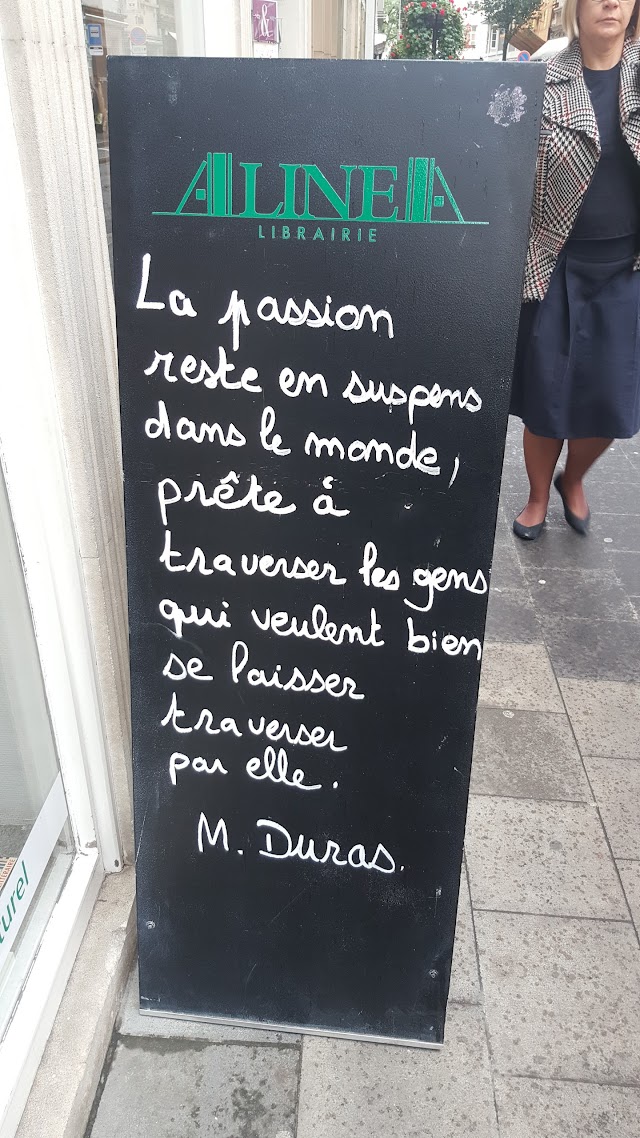 ALINEA
LIBRAIRIE
La passion
reste en suspens
dans le monde,
prête à
traverser les gens
qui veulent bien
se laisser
traverser
par elle.
M. Duras.
turel